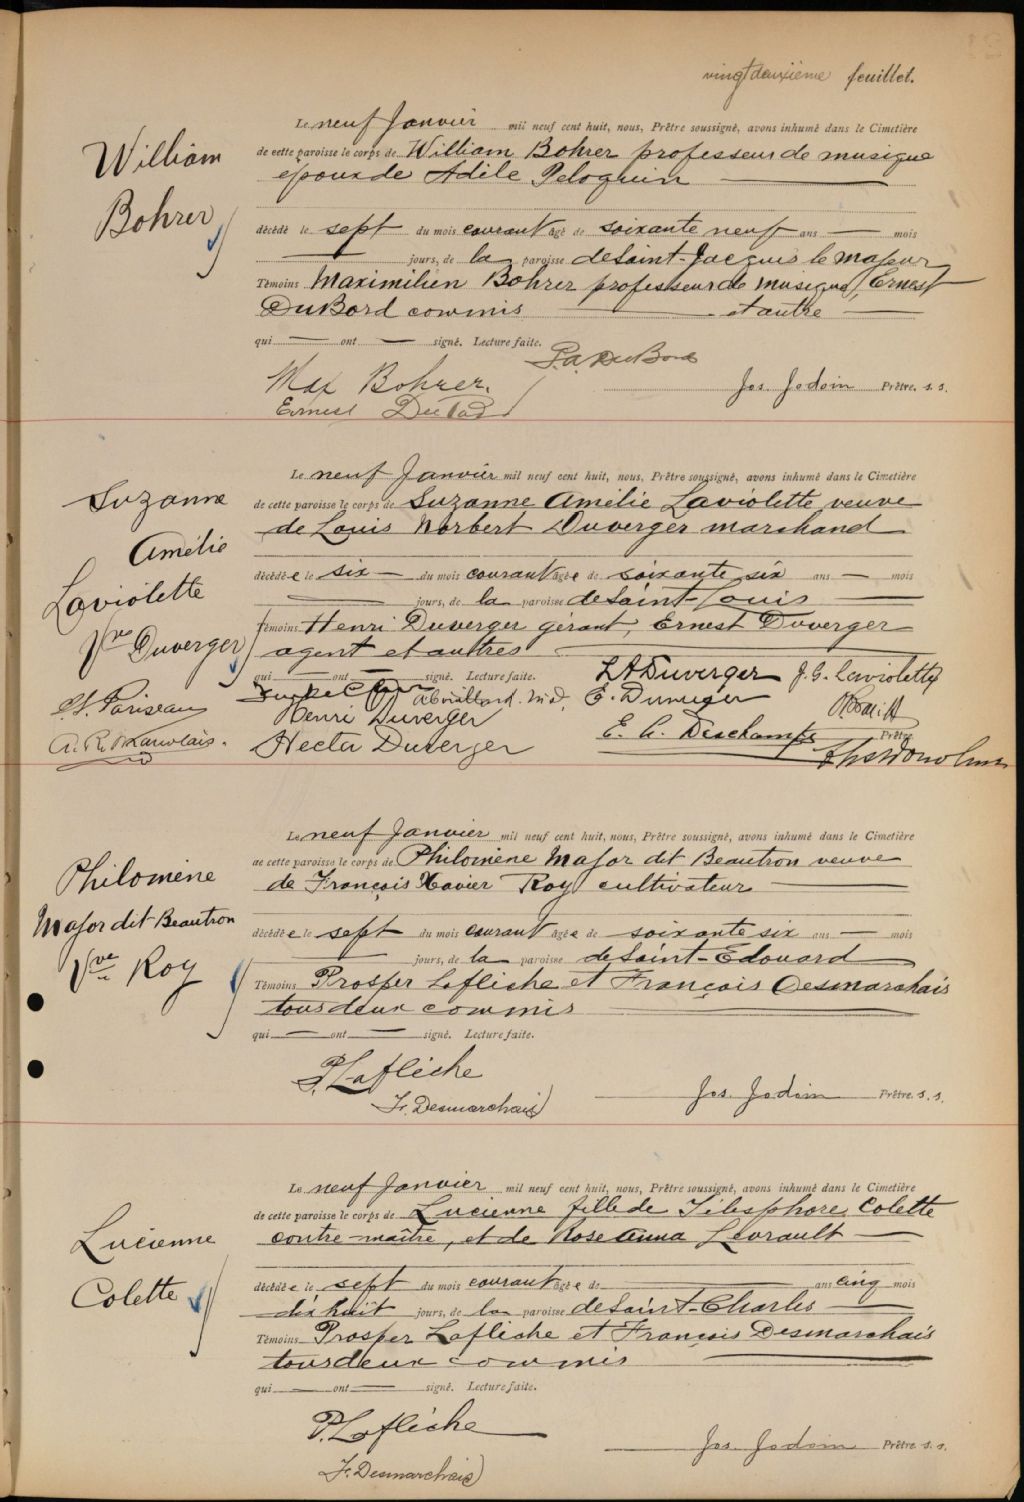 vingt deuxième feuillet.
William
Bohrer
Le neuf Janvier mil neuf cent huit, nous, Prêtre soussigné, avons inhumé dans le Cimetière
de cette paroisse le corps de William Bohrer professeur de musique
époux de Adèle Peloquin
décédé le sept du mois courant âgé de soixante neuf ans — mois
— jours, de la paroisse de Saint-Jacques le majeur
Témoins Maximilien Bohrer professeur de musique, Ernest
DuBord commis — et autre —
qui — ont — signé. Lecture faite.
P.A. DuBord
Max Bohrer
Jos. Jodoin Prêtre. s. s.
Ernest
Suzanne
Amélie
Laviolette
Vve Duverger
Le neuf Janvier mil neuf cent huit, nous, Prêtre soussigné, avons inhumé dans le Cimetière
de cette paroisse le corps de Suzanne Amélie Laviolette veuve
de Louis Norbert Duverger marchand
décédée le six — du mois courant âgée de soixante six ans — mois
— jours, de la paroisse de Saint-Louis —
Témoins Henri Duverger gérant, Ernest Duverger
agent et autres —
qui — ont — signé. Lecture faite.
L A Duverger J. G. Laviolette
E. Duverger
Henri Duverger
Pariseau
E. C. Deschamps Prêtre
A. R.
Hector Duverger
Philomène
Major dit Beautron
Vve Roy
Le neuf Janvier mil neuf cent huit, nous, Prêtre soussigné, avons inhumé dans le Cimetière
de cette paroisse le corps de Philomène Major dit Beautron veuve
de François Xavier Roy cultivateur —
décédée le sept du mois courant âgée de soixante six ans — mois
— jours, de la paroisse de Saint-Edouard
Témoins Prosper Laflèche et François Desmarchais
tous deux commis
qui — ont — signé. Lecture faite.
P. Laflèche
Fr. Desmarchais
Jos. Jodoin Prêtre. s. s.
Lucienne
Colette
Le neuf Janvier mil neuf cent huit, nous, Prêtre soussigné, avons inhumé dans le Cimetière
de cette paroisse le corps de Lucienne fille de Télesphore Colette
contre-maître, et de Rose Anna Levrault —
décédée le sept du mois courant âgée de — ans cinq mois
dix huit jours, de la paroisse de Saint-Charles —
Témoins Prosper Laflèche et François Desmarchais
tous deux commis
qui — ont — signé. Lecture faite.
P. Laflèche
Jos. Jodoin Prêtre. s. s.
Fr. Desmarchais